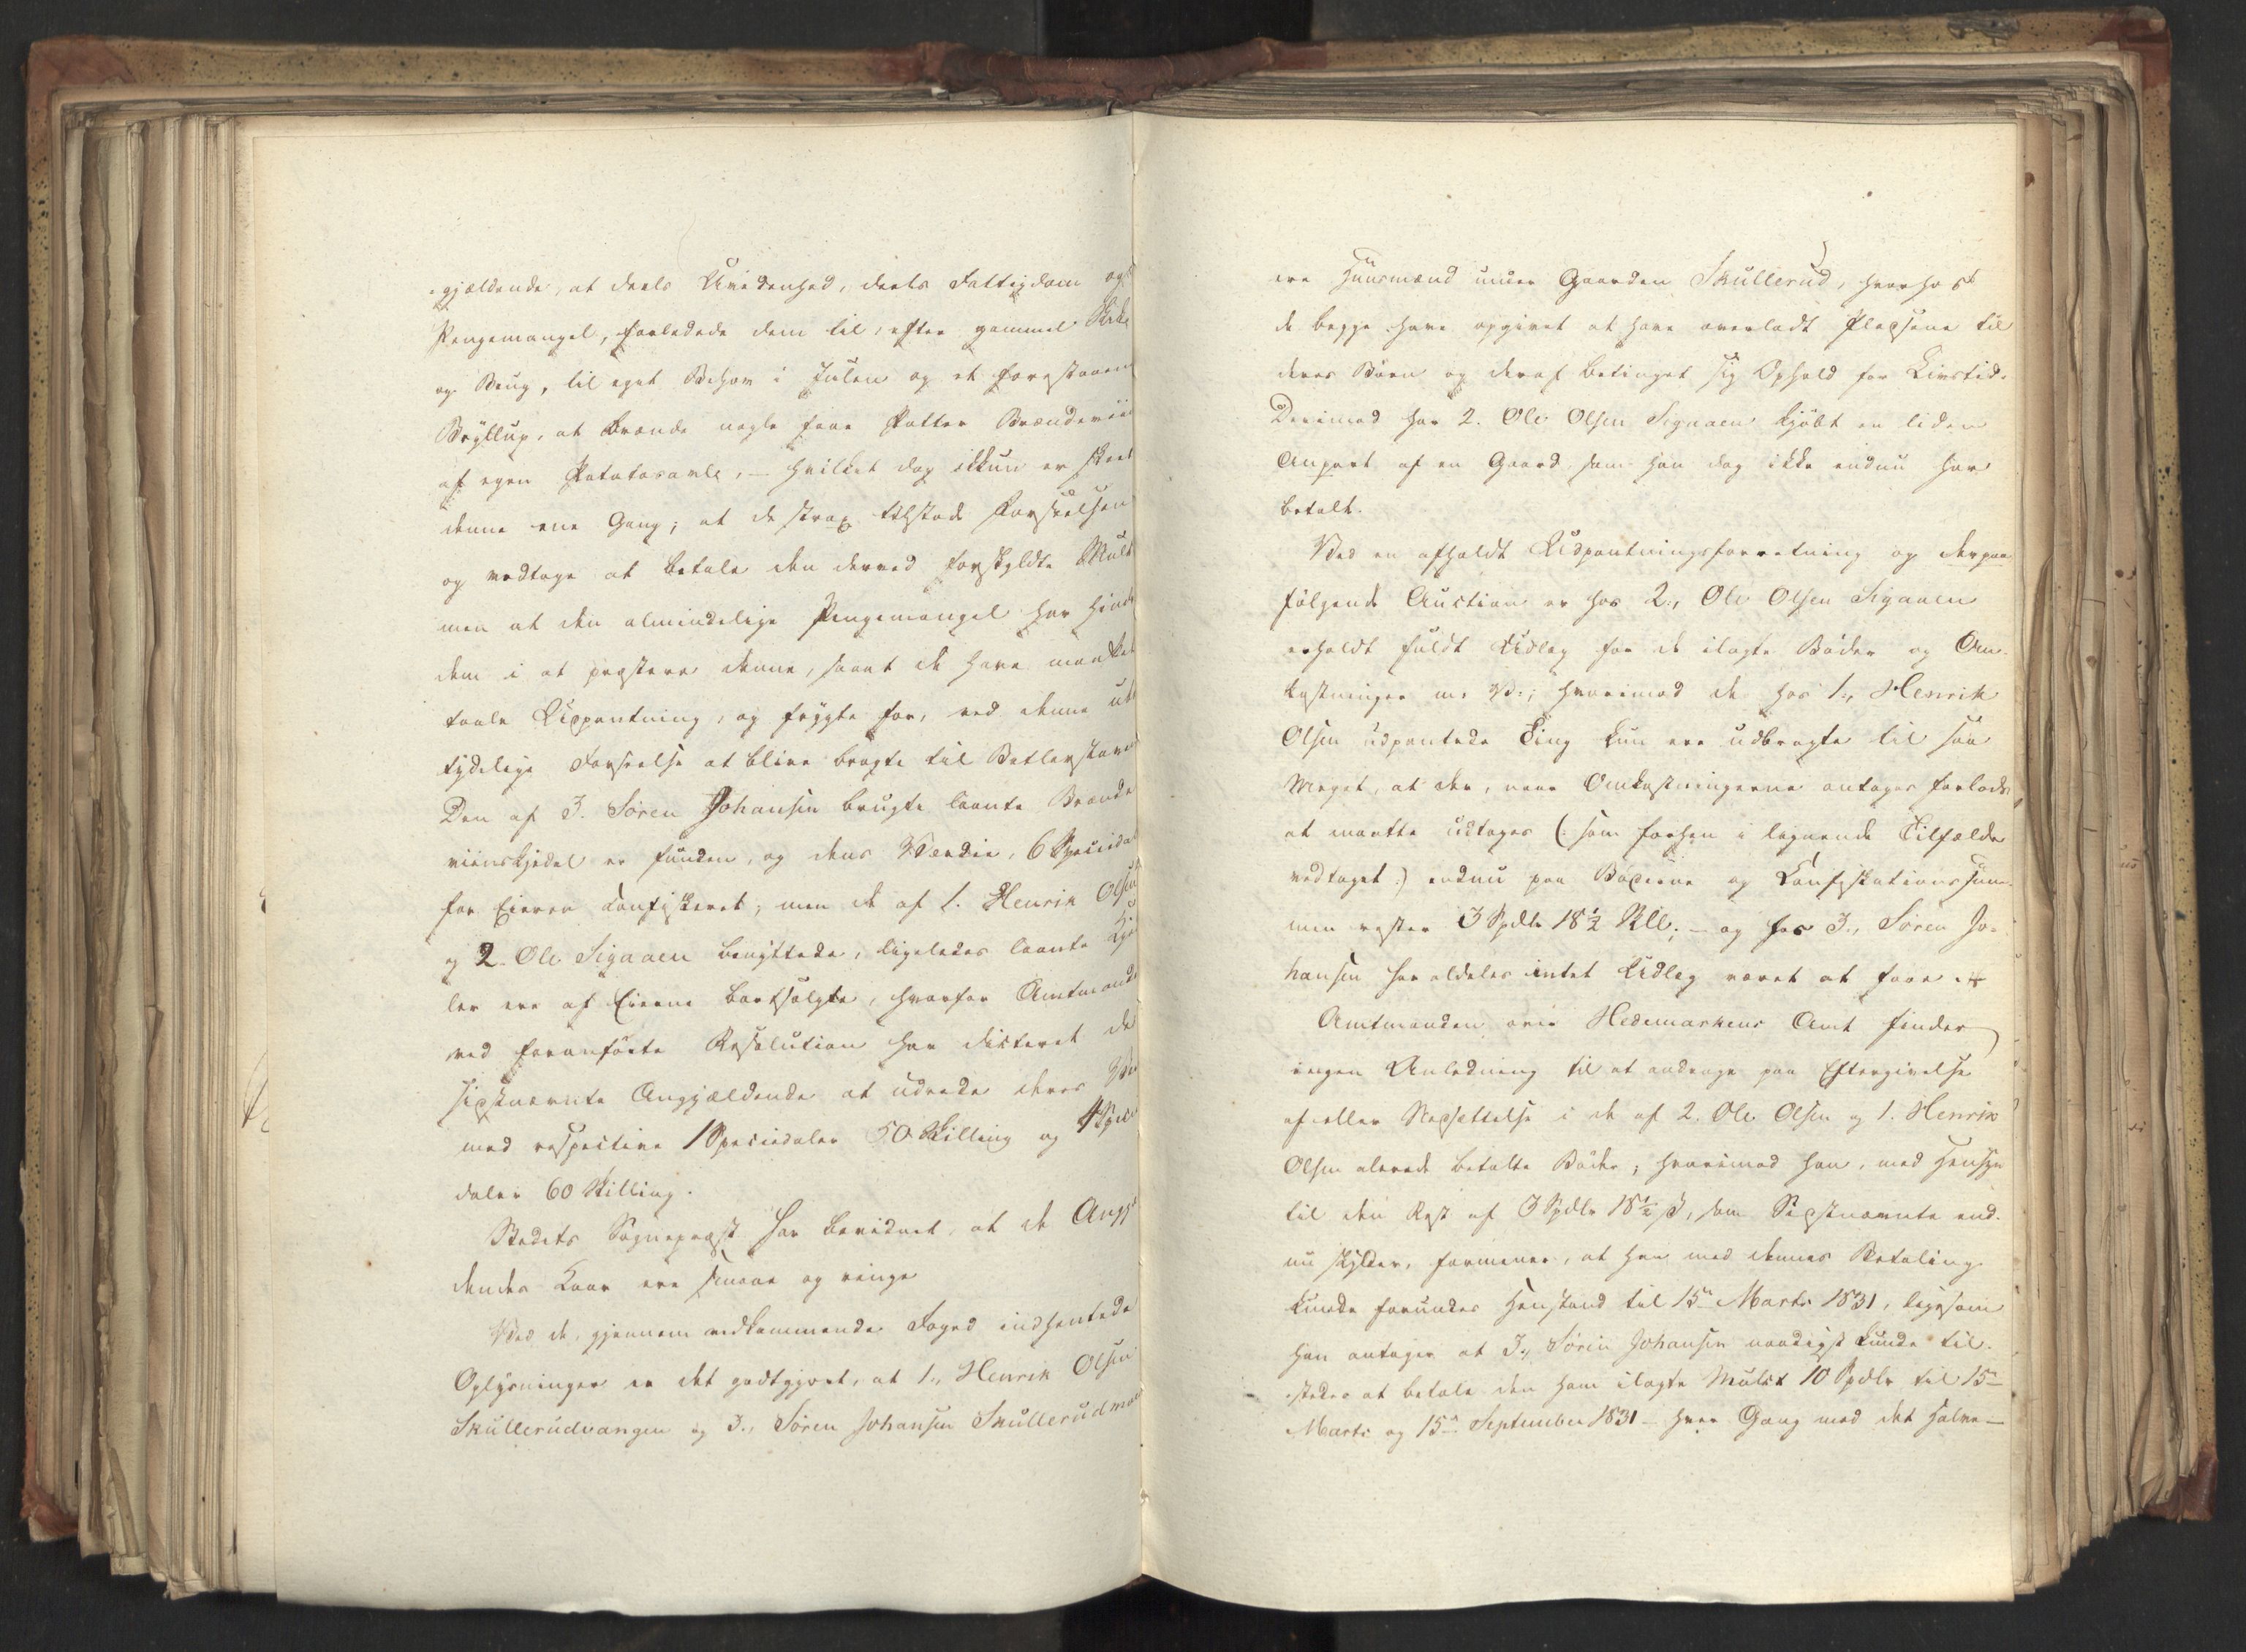 -gjældende, at deels Uvidenhed, deels Fattigdom og
Pengemangel, forledede dem til, efter gammel Skik
og Brug, til eget Behov i Julen og et forestaaende
Bryllup, at brænde nogle faae Potter Brændeviin
af egen Potatosavle, – hvilket dog ikkun er skeet
denne ene Gang; at de strax tilstode Forseelsen
og vedtoge at betale den derved forskyldte Mulct
men at den almindelige Pengemangel har hindr
dem i at præstere denne, samt de have maattet
taale Udpantning, og frygte for, ved denne ube
tydelige Forseelse at blive bragte til Betlerstaven
Den af 3. Søren Johansen brugte laante Brænde
viinskjedel er funden, og dens Værdie, 6 Speciedal
for Eieren konfiskeret; men de af 1. Henrik Olsen
og 2. Ole Sigaaen benyttede, ligeledes laante Kje
ler ere af Eierne bortsolgte, hvorfor Amtmande
ved foranførte Resolution har dicteret de
sidstnævnte Angjældende at udrede deres Vær
med respective 1 Speciedaler 50 Skilling og 4 Specie
daler 60 Skilling.
Stedets Sognepræst har bevidnet, at de Angjæ
dendes Kaar ere smaae og ringe
Ved de, gjennem vedkommende Foged indhentede
Oplysninger er det godtgjort, at 1., Henrik Olsen
Skullerudvangen og 3., Søren Johansen Skullerudmoe
ere Huusmænd under Gaarden Skullerud, hvorhos
de begge have opgivet at have overladt Pladsene til
deres Børn og deraf betinget sig Ophold for Livstid.
Derimod har 2. Ole Olsen Sigaaen kjøbt en liden
Anpart af en Gaard, som han dog ikke endnu har
betalt.
Ved en afholdt Udpantningsforretning og derpaa
følgende Auction er hos 2., Ole Olsen Sigaaen
erholdt fuldt Udlæg for de ilagte Bøder og Om-
kostninger m. V.; hvorimod de hos 1., Henrik
Olsen udpantede Ting kun ere udbragte til saa
Meget, at der, naar Omkostningerne antages forlods
at maatte udtages (: som forhen i lignende Tilfælde
vedtaget :) endnu paa Bøderne og Konfiskationssum-
men rester 3 Spdlr 18½ Skll; – og hos 3., Søren Jo-
hansen har aldeles intet Udlæg været at faae.
Amtmanden over Hedemarkens Amt finder
ingen Anledning til at andrage paa Eftergivelse
af eller Nedsættelse i de af 2. Ole Olsen og 1. Henrik
Olsen alerede betalte Bøder; hvorimod han, med Hensyn
til den Rest af 3 Spdlr 18½ ß, som Sidstnævnte end-
nu skylder, formener, at han med dennes Betaling
kunde forundes Henstand til 15de Marts 1831, ligesom
han antager at 3., Søren Johansen naadigst kunde til-
stedes at betale den ham ilagte Mulct 10 Spdlr til 15de
Marts og 15de September 1831 – hver Gang med det Halve –